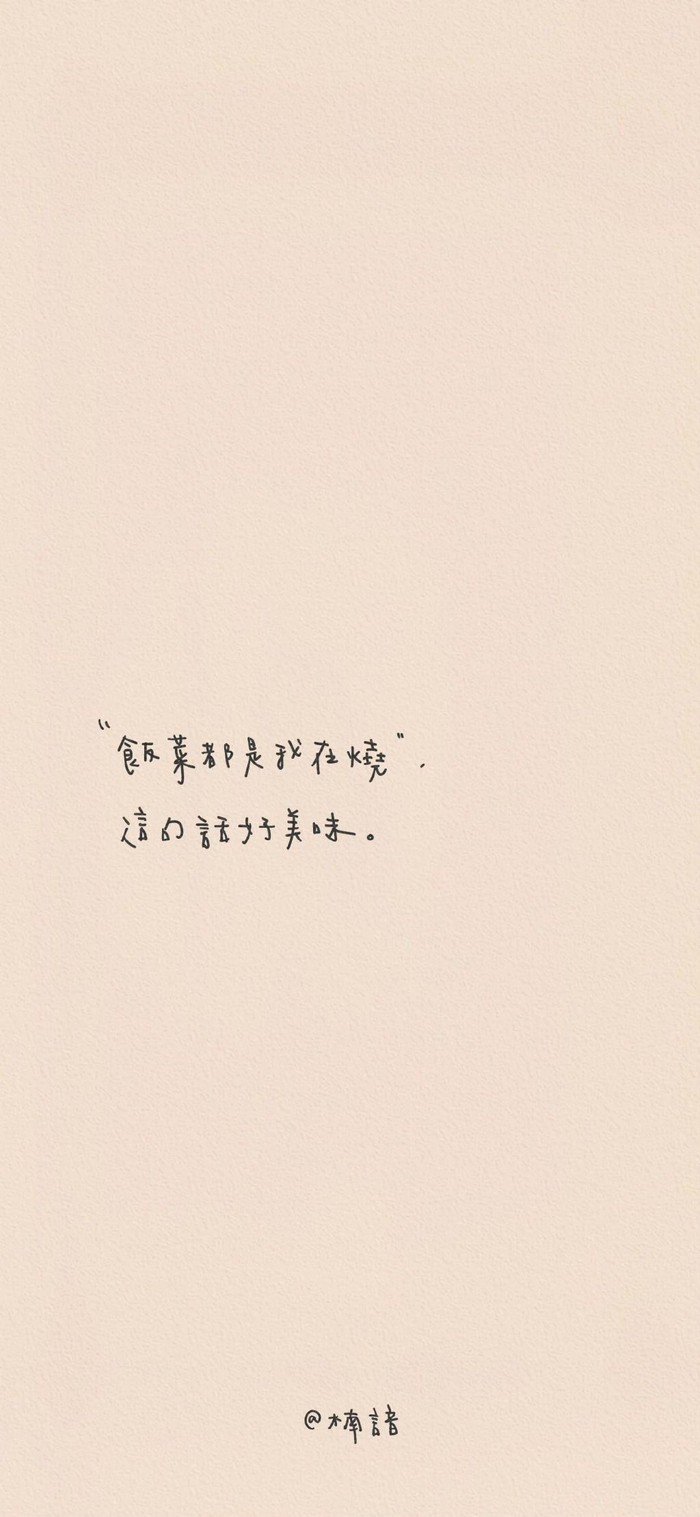 “飯菜都是我在燒”，
這句話好美味。
@楠諳